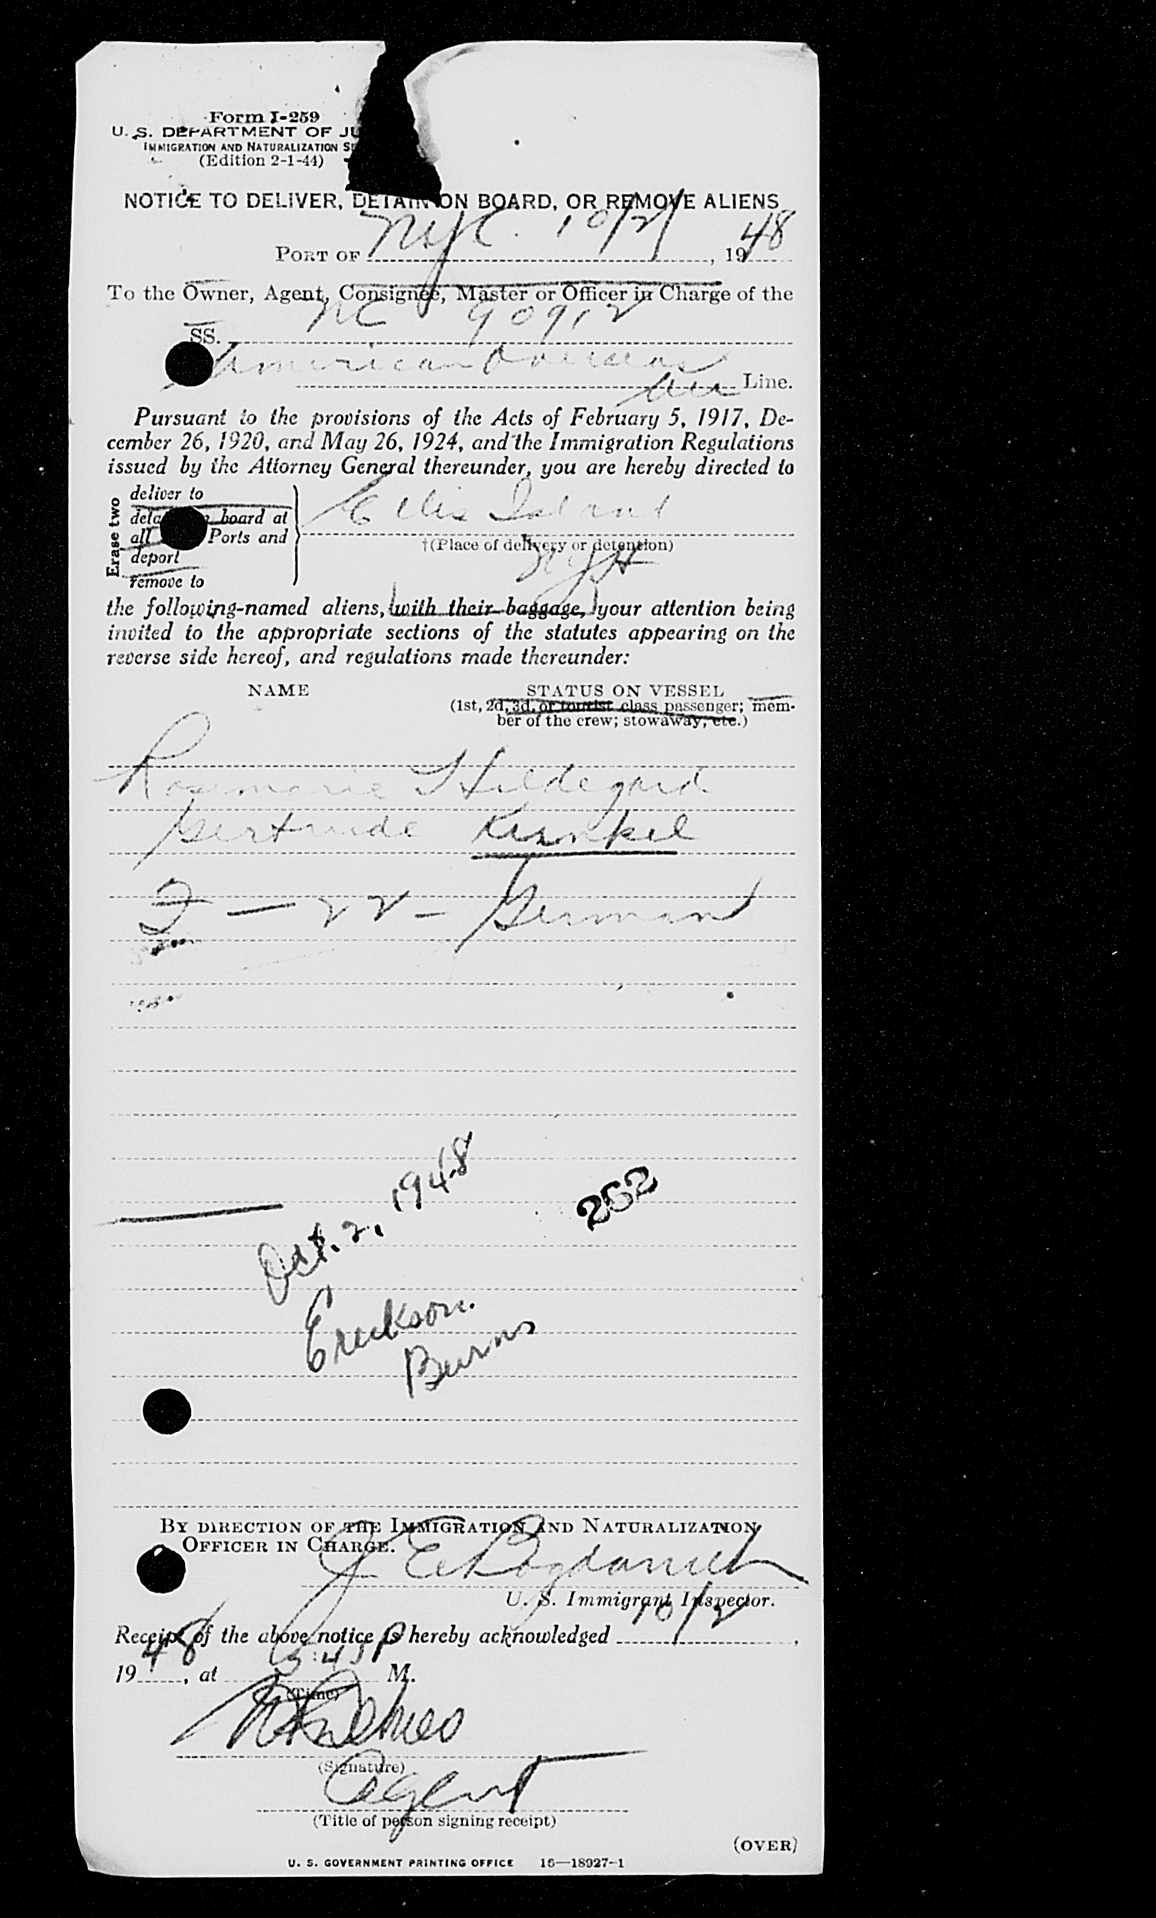 Form I-259
U. S. DEPARTMENT OF JU
IMMIGRATION AND NATURALIZATION S
(Edition 2-1-44)
NOTICE TO DELIVER, DETAIN ON BOARD, OR REMOVE ALIENS
PORT OF NYC. 10/2/, 1948
To the Owner, Agent, Consignee, Master or Officer in Charge of the
SS. NC 90912
American Overseas
Air Line.
Pursuant to the provisions of the Acts of February 5, 1917, De-
cember 26, 1920, and May 26, 1924, and the Immigration Regulations
issued by the Attorney General thereunder, you are hereby directed to
Erase two
deliver to
deta board at
all Ports and
deport
remove to
Ellis Island
†(Place of delivery or detention)
NYH
the following-named aliens, with their baggage, your attention being
invited to the appropriate sections of the statutes appearing on the
reverse side hereof, and regulations made thereunder:
NAME STATUS ON VESSEL
(1st, 2d, 3d, or tourist class passenger; mem-
ber of the crew; stowaway, etc.)
Rosemarie Hildegard
Gertrude Kunkel
F — 22 - German
Oct. 2, 1948
262
Erickson
Burns
BY DIRECTION OF THE IMMIGRATION AND NATURALIZATION
OFFICER IN CHARGE.
J E Bogdanich
U. S. Immigrant Inspector.
Receipt of the above notice is hereby acknowledged 10/2,
1948, at 5:45 P M.
(Time)
(Signature)
Agent
(Title of person signing receipt)
(OVER)
U. S. GOVERNMENT PRINTING OFFICE 16—18927-1